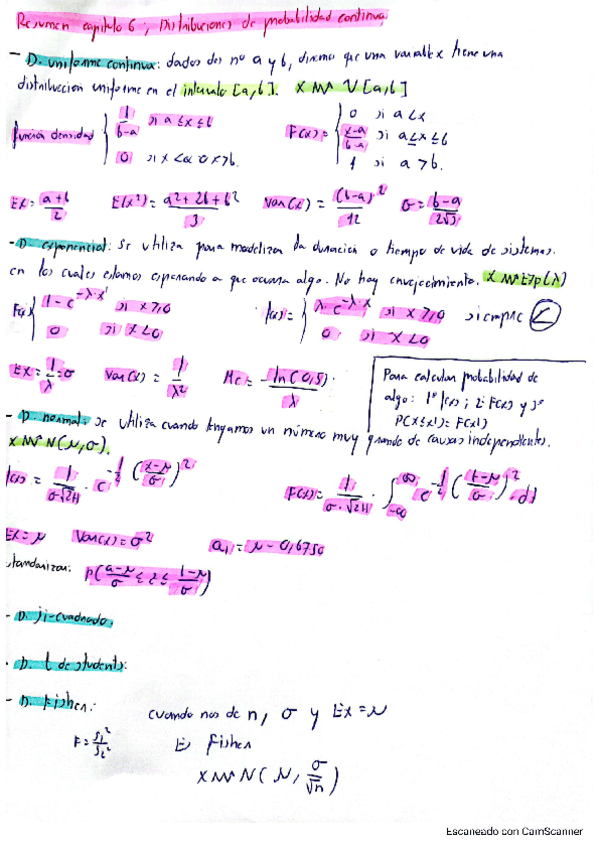 Resumen capitulo 6; Distribuciones de probabilidad continua
- D. uniforme continua: dados dos nº a y b, diremos que una variable x tiene una
distribución uniforme en el intervalo [a,b]. X ~ U[a,b]
función densidad { 1/(b-a) si a≤x≤b ; 0 si x<a o x>b. F(x)= { 0 si a<x ; (x-a)/(b-a) si a≤x≤b ; 1 si a>b.
Ex = (a+b)/2 E(x²) = (a²+2b+b²)/3 Var(x) = (b-a)²/12 σ = (b-a)/(2√3)
- D. exponencial: Se utiliza para modelizar la duración o tiempo de vida de sistemas
en los cuales estamos esperando a que ocurra algo. No hay envejecimiento. X ~ Exp(λ)
F(x) { 1-e^(-λ·x) si x≥0 ; 0 si x<0 f(x)= { λ·e^(-λ·x) si x≥0 ; 0 si x<0 siempre <
Ex = 1/λ = σ Var(x) = 1/λ² Me = -ln(0,5)/λ
Para calcular probabilidad de
algo: 1º f(x); 2º F(x) y 3º
P(X≤x1) = F(x1)
- D. normal: se utiliza cuando tengamos un número muy grande de causas independientes.
X ~ N(μ,σ).
f(x) = 1/(σ√2π) · e^(-1/2 ((x-μ)/σ)²) F(x) = 1/(σ·√2π) · ∫ e^(-1/2 ((t-μ)/σ)²) · dt
Ex = μ Var(x) = σ² a1 = μ - 0,675σ
standarizar: P((a-μ)/σ ≤ z ≤ (b-μ)/σ)
- D. ji-cuadrado.
- D. t de students:
- D. Fisher:
cuando nos de n, σ y Ex = μ
F = S1²/S2² Es Fisher
X ~ N(μ, σ/√n)
Escaneado con CamScanner